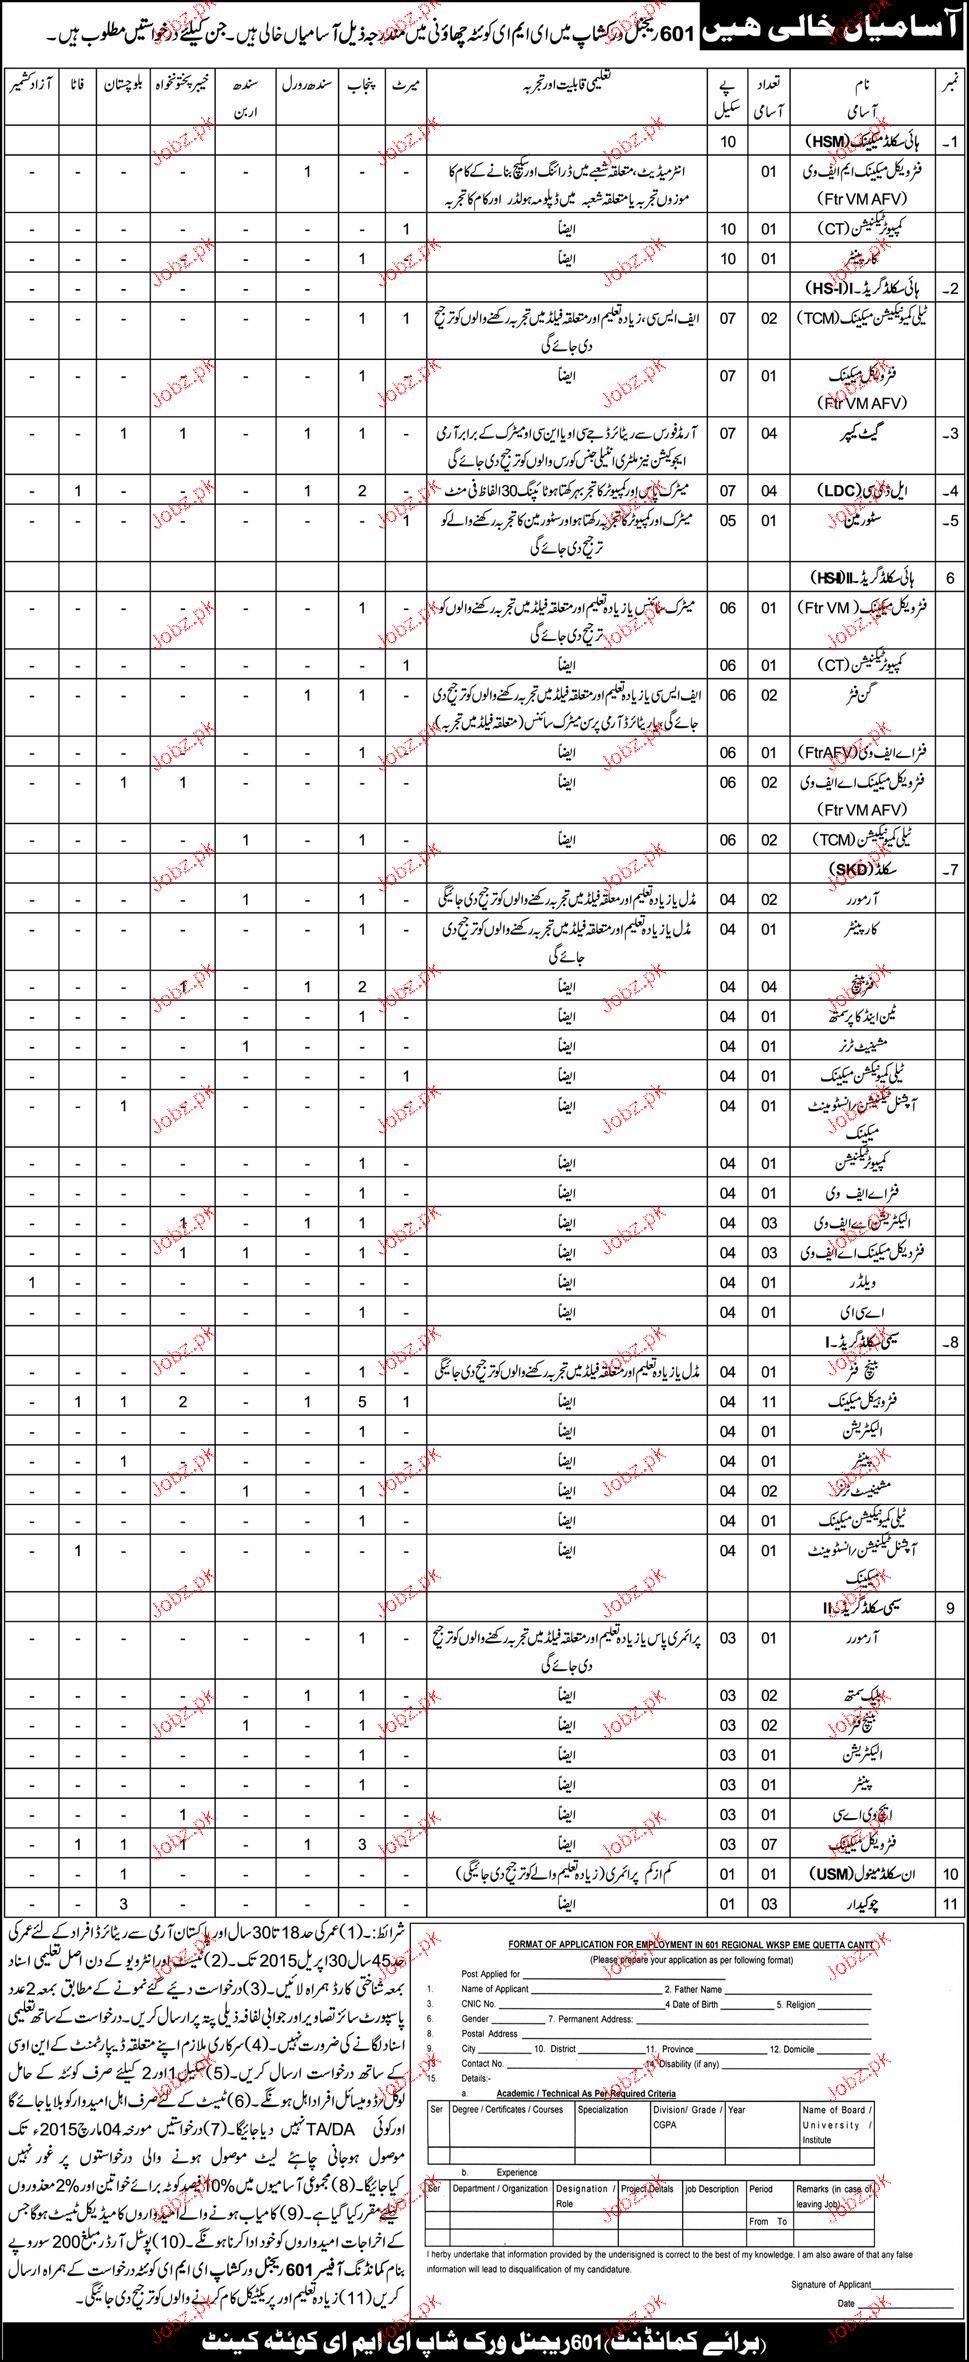 آسامیاں خالی ہیں
601 ریجنل ورکشاپ میں ای ایم ای کوئٹہ چھاؤنی میں مندرجہ ذیل آسامیاں خالی ہیں۔ جن کیلئے درخواستیں مطلوب ہیں۔
نمبر | نام آسامی | تعداد آسامی | پے سکیل | تعلیمی قابلیت اور تجربہ | میرٹ | پنجاب | سندھ رورل | سندھ اربن | خیبر پختونخواہ | بلوچستان | فاٹا | آزاد کشمیر
1۔ ہائی سکلڈ میکینک (HSM) 10
فٹر ویکل میکینک ایم ایف وی (Ftr VM AFV) 01 انٹرمیڈیٹ، متعلقہ شعبے میں ڈرائنگ اور سکیچ بنانے کے کام کا موزوں تجربہ یا متعلقہ شعبہ میں ڈپلومہ ہولڈر اور کام کا تجربہ - - 1 - - - - -
کمپیوٹر ٹیکنیشن (CT) 01 10 ایضاً 1 - - - - - - -
کارپینٹر 01 10 ایضاً - 1 - - - - - -
2۔ ہائی سکلڈ گریڈ۔I (HS-I) - - - - - -
ٹیلی کمیونیکیشن میکینک (TCM) 02 07 ایف ایس سی، زیادہ تعلیم اور متعلقہ فیلڈ میں تجربہ رکھنے والوں کو ترجیح دی جائے گی 1 1 - - - - - -
فٹر ویکل میکینک (Ftr VM AFV) 01 07 ایضاً - 1 - - - - - -
3۔ گیٹ کیپر 04 07 آرمڈ فورس سے ریٹائرڈ جے سی او یا این سی او میٹرک کے برابر آرمی ایجوکیشن نیز ملٹری انٹیلی جنس کورس والوں کو ترجیح دی جائے گی - 1 1 - 1 1 - -
4۔ ایل ڈی سی (LDC) 04 07 میٹرک پاس اور کمپیوٹر کا تجربہ رکھتا ہو ٹائپنگ 30 الفاظ فی منٹ - 2 1 - - - 1 -
5۔ سٹور مین 01 05 میٹرک اور کمپیوٹر کا تجربہ رکھتا ہو اور سٹور مین کا تجربہ رکھنے والے کو ترجیح دی جائے گی 1 - - - - - - -
6 ہائی سکلڈ گریڈ۔II (HS-II)
فٹر ویکل میکینک (Ftr VM) 01 06 میٹرک سائنس یا زیادہ تعلیم اور متعلقہ فیلڈ میں تجربہ رکھنے والوں کو ترجیح دی جائے گی - 1 - - - - - -
کمپیوٹر ٹیکنیشن (CT) 01 06 ایضاً 1 - - - - - - -
گن فٹر 02 06 ایف ایس سی یا زیادہ تعلیم اور متعلقہ فیلڈ میں تجربہ رکھنے والوں کو ترجیح دی جائے گی، یا ریٹائرڈ آرمی پرسن میٹرک سائنس (متعلقہ فیلڈ میں تجربہ) - 1 1 - - - - -
فٹر اے ایف وی (FtrAFV) 01 06 ایضاً - 1 - - - - - -
فٹر ویکل میکینک اے ایف وی (Ftr VM AFV) 02 06 ایضاً - - - - 1 1 - -
ٹیلی کمیونیکیشن (TCM) 02 06 ایضاً - 1 - 1 - - - -
7۔ سکلڈ (SKD)
آرمورر 02 04 مڈل یا زیادہ تعلیم اور متعلقہ فیلڈ میں تجربہ رکھنے والوں کو ترجیح دی جائیگی - 1 - 1 - - - -
کارپینٹر 01 04 مڈل یا زیادہ تعلیم اور متعلقہ فیلڈ میں تجربہ رکھنے والوں کو ترجیح دی جائے گی - 1 - - - - - -
فٹر بینچ 04 04 ایضاً - 2 1 - 1 - - -
ٹین اینڈ کاپر سمتھ 01 04 ایضاً - 1 - - - - - -
مشینیٹ ٹرنر 01 04 ایضاً - - - 1 - - - -
ٹیلی کمیونیکشن میکینک 01 04 ایضاً 1 - - - - - - -
آپشنل ٹیکنیشن/انسٹرومینٹ میکینک 01 04 ایضاً - - - - - 1 - -
کمپیوٹر ٹیکنیشن 01 04 ایضاً - 1 - - - - - -
فٹر اے ایف وی 01 04 ایضاً - 1 - - - - - -
الیکٹریشن اے ایف وی 03 04 ایضاً - 1 1 - 1 - - -
فٹر ویکل میکینک اے ایف وی 03 04 ایضاً - 1 - 1 1 - - -
ویلڈر 01 04 ایضاً - - - - - - - 1
اے سی ای 01 04 ایضاً - 1 - - - - - -
8۔ سیمی سکلڈ گریڈ۔I
بینچ فٹر 01 04 مڈل یا زیادہ تعلیم اور متعلقہ فیلڈ میں تجربہ رکھنے والوں کو ترجیح دی جائیگی - 1 - - - - - -
فٹر وہیکل میکینک 11 04 ایضاً 1 5 1 - 2 1 1 -
الیکٹریشن 01 04 ایضاً - 1 - - - - - -
پینٹر 01 04 ایضاً - - - - - 1 - -
مشینیسٹ ٹرنر 02 04 ایضاً - 1 - 1 - - - -
ٹیلی کمیونیکیشن میکینک 01 04 ایضاً - 1 - - - - - -
آپشنل ٹیکنیشن/انسٹرومینٹ میکینک 01 04 ایضاً - - - - - - 1 -
9 سیمی سکلڈ گریڈ۔II
آرمورر 01 03 پرائمری پاس یا زیادہ تعلیم اور متعلقہ فیلڈ میں تجربہ رکھنے والوں کو ترجیح دی جائے گی - 1 - - - - - -
بلیک سمتھ 02 03 ایضاً - 1 1 - - - - -
بینچ فٹر 02 03 ایضاً - 1 - 1 - - - -
الیکٹریشن 01 03 ایضاً - 1 - - - - - -
پینٹر 01 03 ایضاً - 1 - - - - - -
ایچ وی اے سی 01 03 ایضاً - - - - 1 - - -
فٹر ویکل میکینک 07 03 ایضاً - 3 1 - 1 1 1 -
10 ان سکلڈ مینول (USM) 01 01 کم از کم پرائمری (زیادہ تعلیم والے کو ترجیح دی جائیگی) - - - - - 1 - -
11 چوکیدار 03 01 ایضاً - - - - - 3 - -
شرائط:۔ (1) عمر کی حد 18 تا 30 سال اور پاکستان آرمی سے ریٹائرڈ افراد کے لئے عمر کی
حد 45 سال 30 اپریل 2015 تک۔ (2) ٹیسٹ اور انٹرویو کے دن اصل تعلیمی اسناد
بمعہ شناختی کارڈ ہمراہ لائیں۔ (3) درخواست دیئے گئے نمونے کے مطابق بمعہ 2 عدد
پاسپورٹ سائز تصاویر اور جوابی لفافہ ذیلی پتہ پر ارسال کریں۔ درخواست کے ساتھ تعلیمی
اسناد لگانے کی ضرورت نہیں۔ (4) سرکاری ملازم اپنے متعلقہ ڈیپارٹمنٹ کے این او سی
کے ساتھ درخواست ارسال کریں۔ (5) سکیل 1 اور 2 کیلئے صرف کوئٹہ کے حامل
لوکل/ڈومیسائل افراد اہل ہونگے۔ (6) ٹیسٹ کے لئے صرف اہل امیدوار کو بلایا جائے گا
اور کوئی TA/DA نہیں دیا جائیگا۔ (7) درخواستیں مورخہ 04 مارچ 2015ء تک
موصول ہو جانی چاہئے لیٹ موصول ہونے والی درخواستوں پر غور نہیں
کیا جائیگا۔ (8) مجموعی آسامیوں میں 10% فیصد کوٹہ برائے خواتین اور 2% معذوروں
کیلئے مقرر کیا گیا ہے۔ (9) کامیاب ہونے والے امیدواروں کا میڈیکل ٹیسٹ ہوگا جس
کے اخراجات امیدواروں کو خود ادا کرنا ہونگے۔ (10) پوسٹل آرڈر مبلغ 200 سو روپے
بنام کمانڈنگ آفیسر 601 ریجنل ورکشاپ ای ایم ای کوئٹہ درخواست کے ہمراہ ارسال
کریں (11) زیادہ تعلیم اور پریکٹیکل کام کرنے والوں کو ترجیح دی جائیگی۔
FORMAT OF APPLICATION FOR EMPLOYMENT IN 601 REGIONAL WKSP EME QUETTA CANTT
(Please prepare your application as per following format)
Post Applied for
1. Name of Applicant 2. Father Name
3. CNIC No. 4 Date of Birth 5. Religion
6. Gender 7. Permanent Address:
8. Postal Address
9. City 10. District 11. Province 12. Domicile
13. Contact No. 14. Disability (if any)
15. Details:-
a. Academic / Technical As Per Required Criteria
Ser | Degree / Certificates / Courses | Specialization | Division/ Grade / CGPA | Year | Name of Board / University / Institute
b. Experience
Ser | Department / Organization | Designation / Role | Project Details | job Description | Period From To | Remarks (in case of leaving Job)
I herby undertake that information provided by the undersigned is correct to the best of my knowledge. I am also aware of that any false
information will lead to disqualification of my candidature.
Signature of Applicant
Date
(برائے کمانڈنٹ) 601 ریجنل ورک شاپ ای ایم ای کوئٹہ کینٹ
Jobz.pk